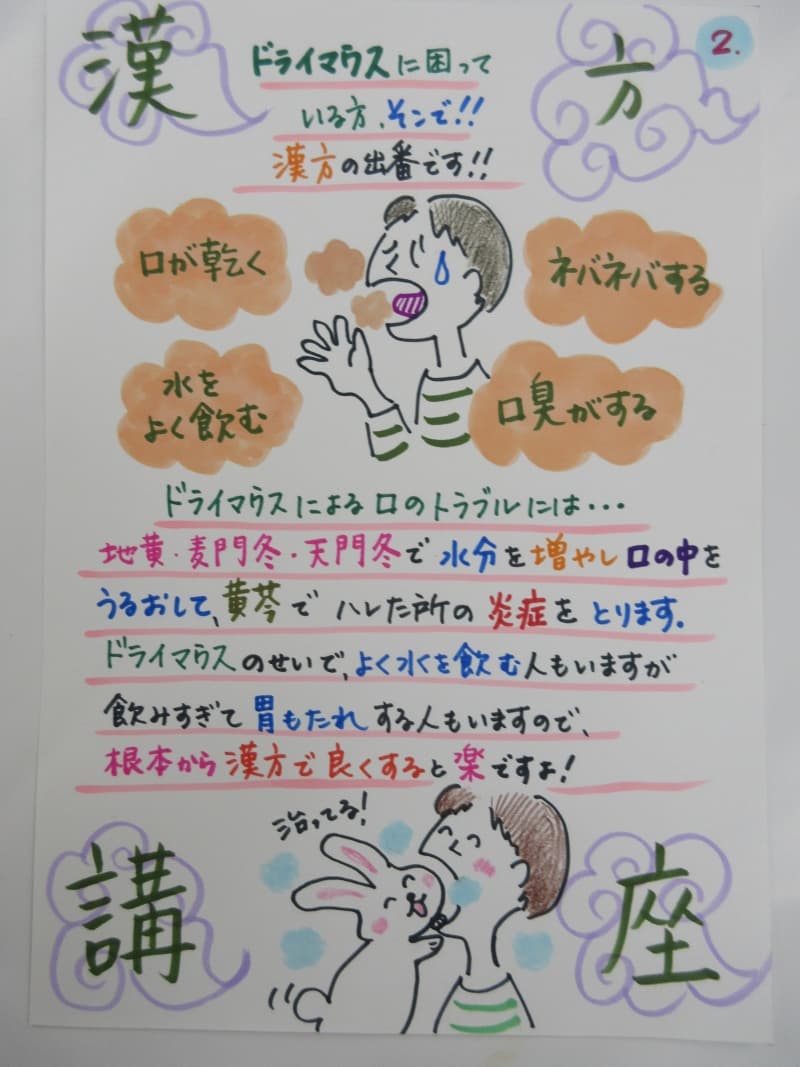 漢方
2.
ドライマウスに困って
いる方、そこで!!
漢方の出番です!!
口が乾く
ネバネバする
水を
よく飲む
口臭がする
ドライマウスによる口のトラブルには・・・
地黄・麦門冬・天門冬で水分を増やし口の中を
うるおして、黄芩でハレた所の炎症をとります。
ドライマウスのせいで、よく水を飲む人もいますが
飲みすぎて胃もたれする人もいますので、
根本から漢方で良くすると楽ですよ!
治ってる!
講座